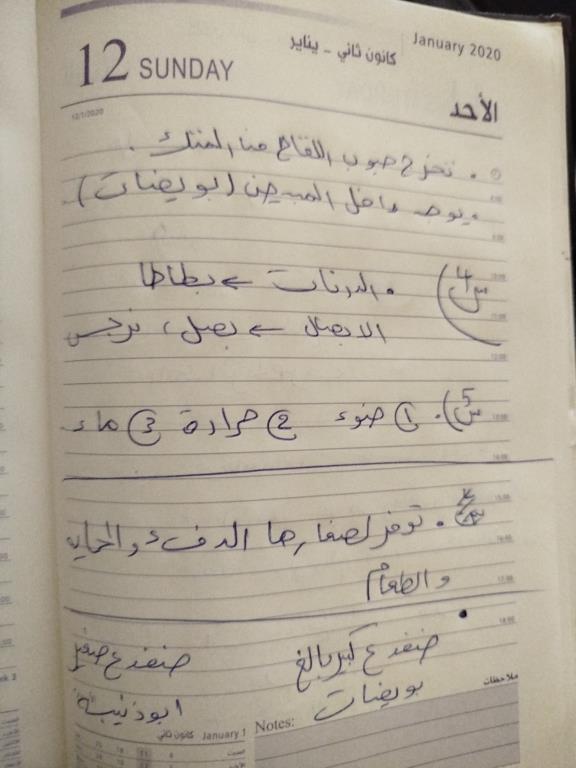 January 2020
كانون ثاني - يناير
12 SUNDAY
الأحد
12/1/2020
. تخرج حبوب اللقاح من المتك .
. يوجد داخل المبيض (بويضات).
س4) . الدرنات ← بطاطا
الابصال ← بصل، نرجس
س5) . 1 ضوء 2 حرارة 3 ماء
. توفر لصغارها الدفء والحماية
والطعام
ضفدع كبير بالغ
ضفدع صغير
بويضات
ابو ذنيبة
ملاحظات
Notes:
January 1 كانون ثاني